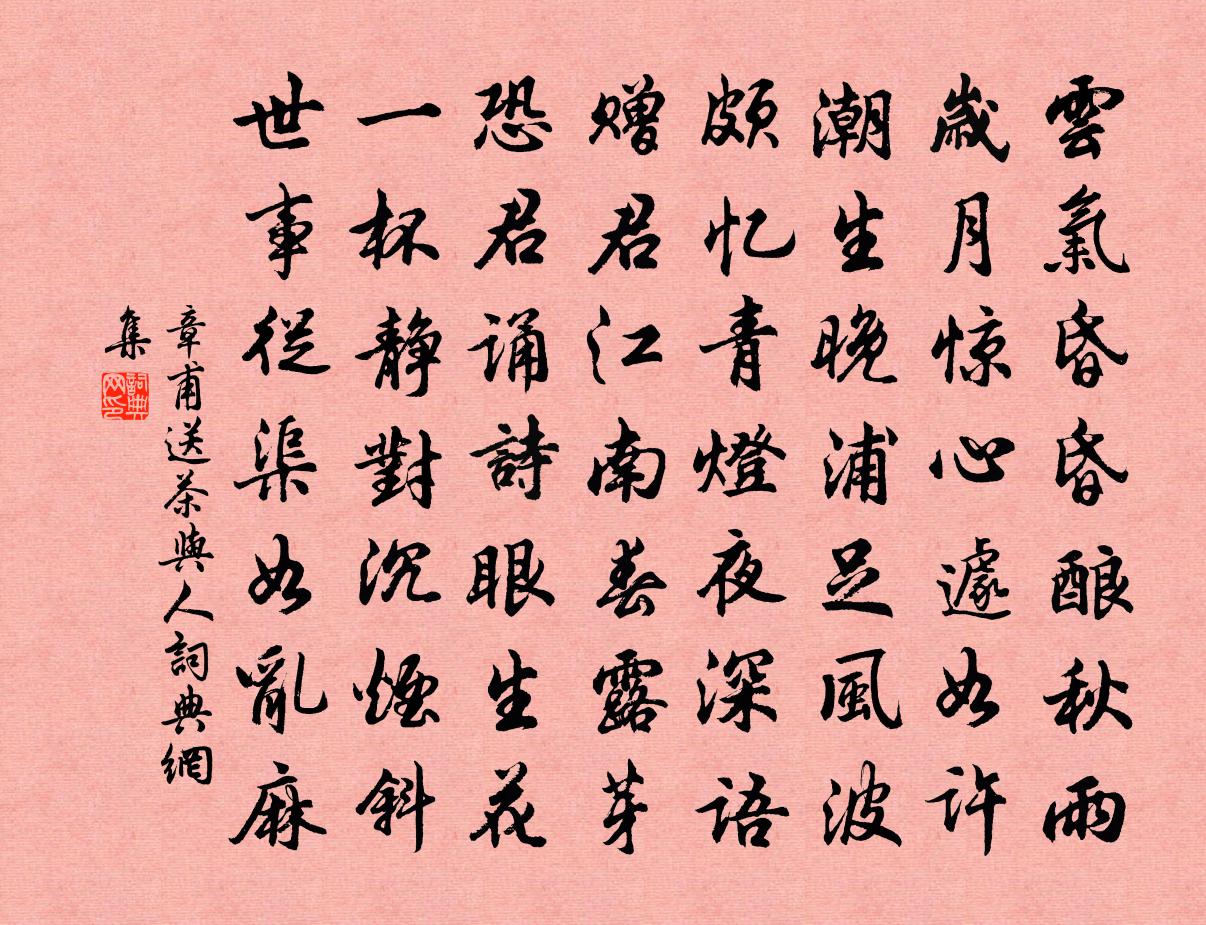 雲氣昏昏酿秋雨
歳月惊心遽如许
潮生晚浦足風波
頗忆青燈夜深语
赠君江南春露芽
恐君诵詩眼生花
一杯静對沉煙斜
世事從渠如亂麻
章甫送茶與人詞典網
集
詞典
网印